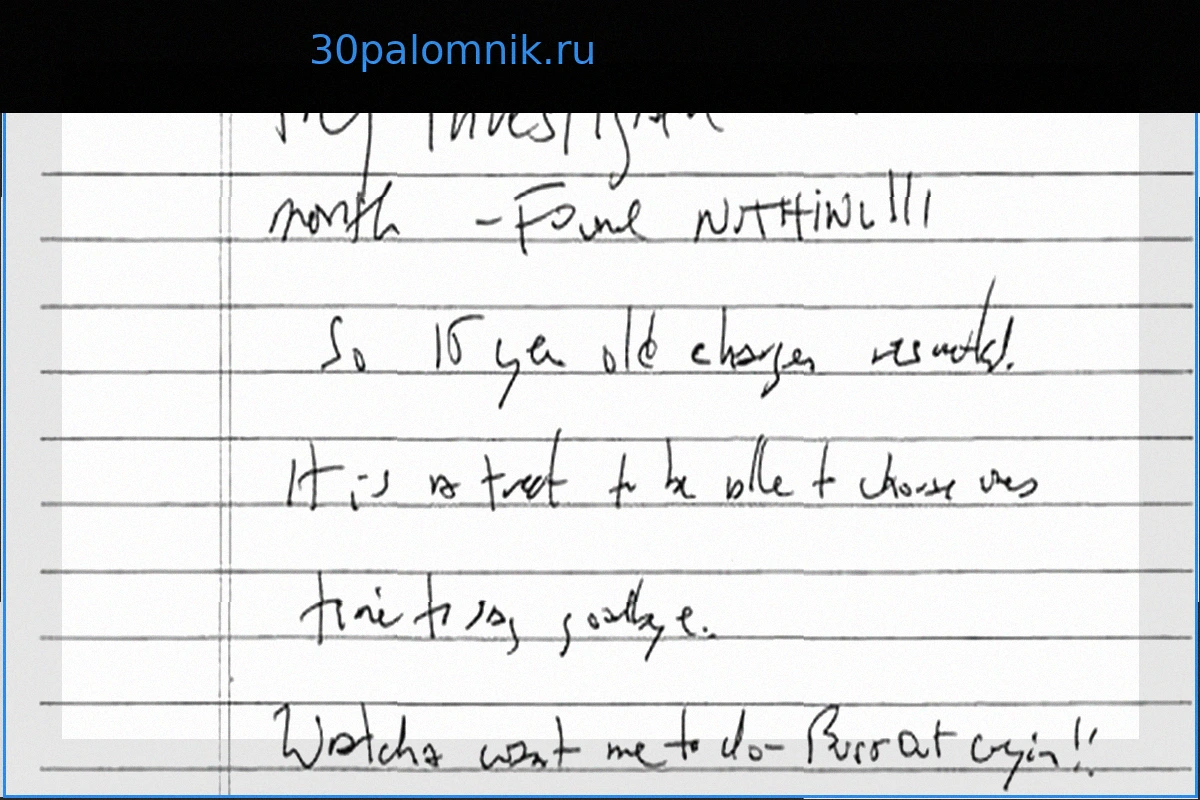 30palomnik.ru
month - Found NOTHING!!!
So 15 year old charges resulted.
It is a treat to be able to choose ones
time to say goodbye.
Watcha want me to do - Burst out cryin!!